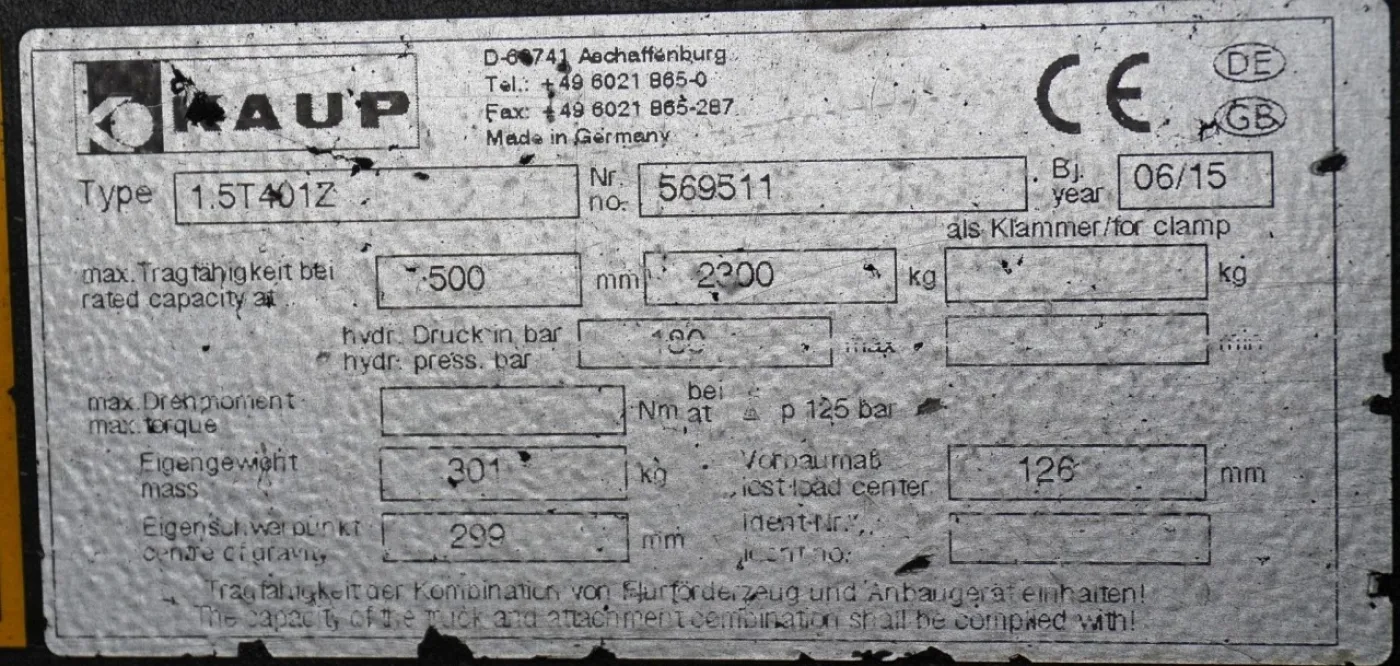 KAUP
D-63741 Aschaffenburg
Tel.: +49 6021 865-0
Fax: +49 6021 865-287
Made in Germany
CE
DE
GB
Type 1.5T401Z Nr. no. 569511 Bj. year 06/15
als Klammer/for clamp
max. Tragfähigkeit bei 500 mm 2300 kg kg
rated capacity at
hydr. Druck in bar 180 max min
hydr. press. bar
max. Drehmoment Nm bei p 125 bar
max. torque at
Eigengewicht 301 kg Vorbaumaß 126 mm
mass lost load center
Eigenschwerpunkt 299 mm Ident-Nr.
centre of gravity ident no.
Tragfähigkeit der Kombination von Flurförderzeug und Anbaugerät einhalten!
The capacity of the truck and attachment combination shall be complied with!